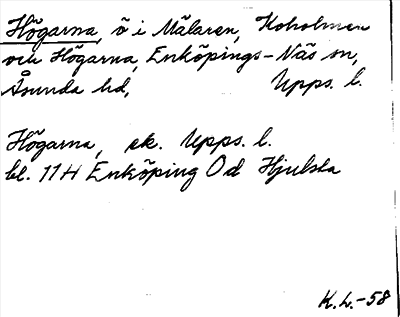 Högarna, ö i Mälaren, Koholmen
och Högarna, Enköpings-Näs sn,
Åsunda hd, Upps. l.
Högarna, ek. Upps. l.
bl. 11H Enköping Od Hjulsta
K.L.-58